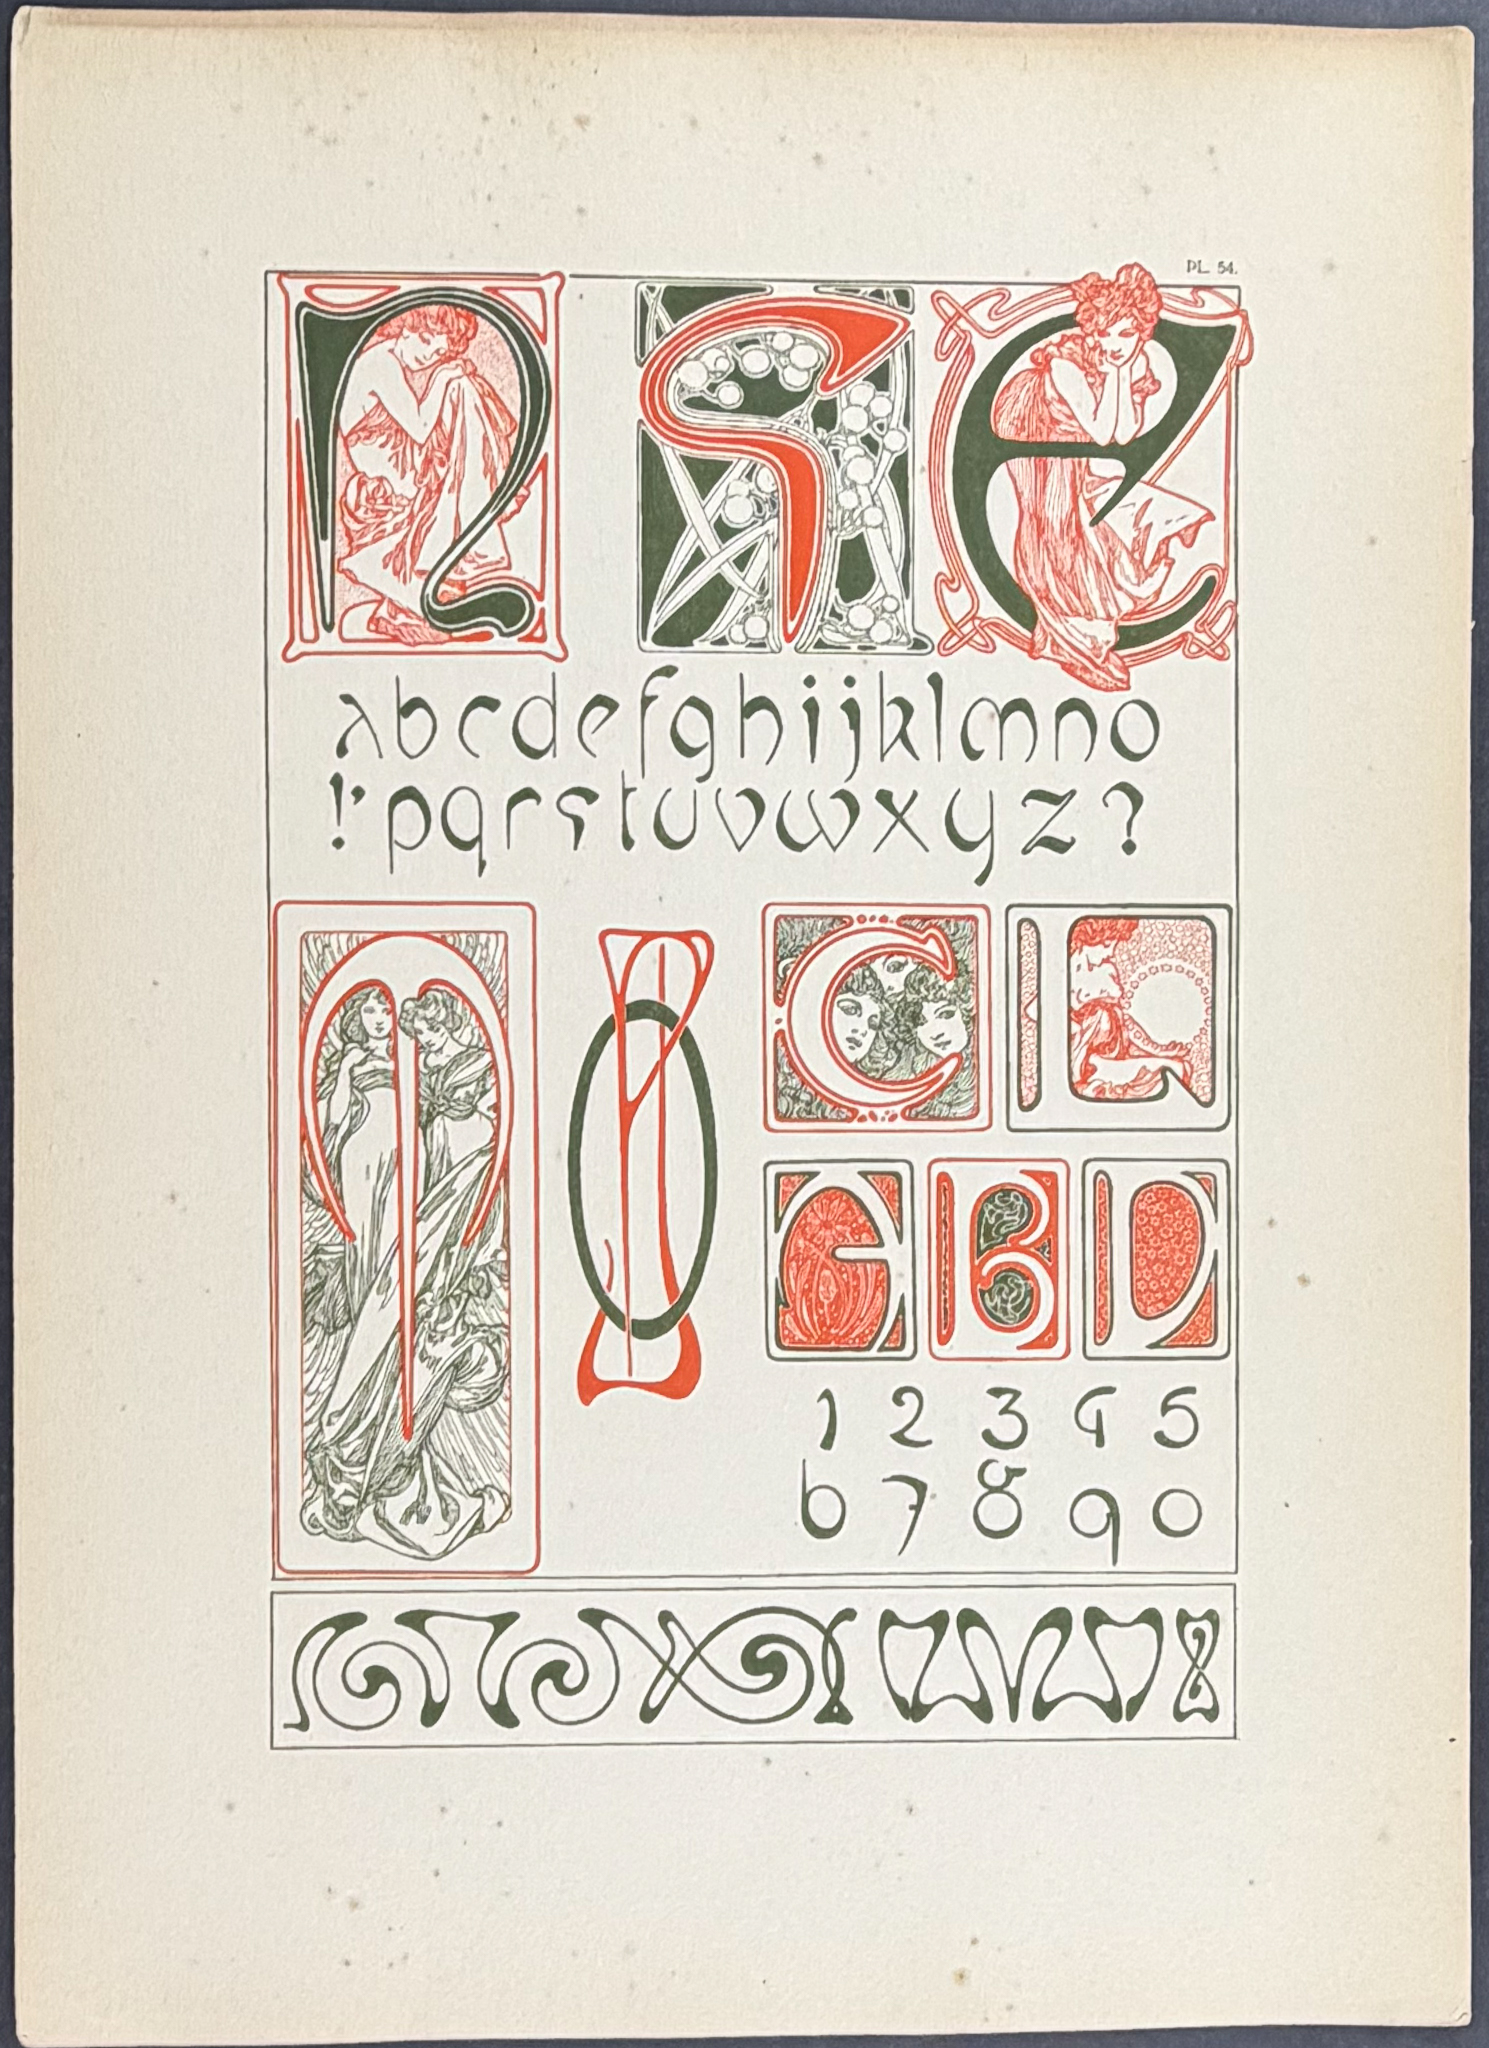 PL. 54.
n s e
abcdefghijklmno
!'pqrstuvwxyz?
M C L
A B D
1 2 3 4 5
6 7 8 9 0